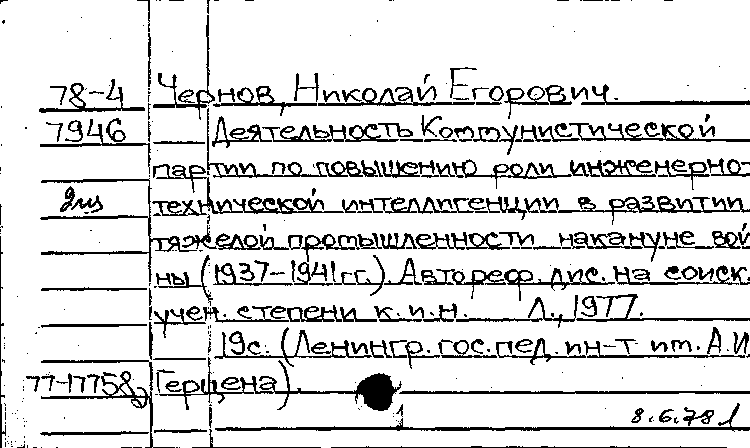 78-4 Чернов, Николай Егорович.
7946 Деятельность Коммунистической
партии по повышению роли инженерно-
2из технической интеллигенции в развитии
тяжелой промышленности накануне вой
ны (1937-1941гг.). Автореф. дис. на соиск.
учен. степени к.и.н. Л., 1977.
19с. (Ленингр. гос. пед. ин-т им. А.И.
77-17758 Герцена).
8.6.78